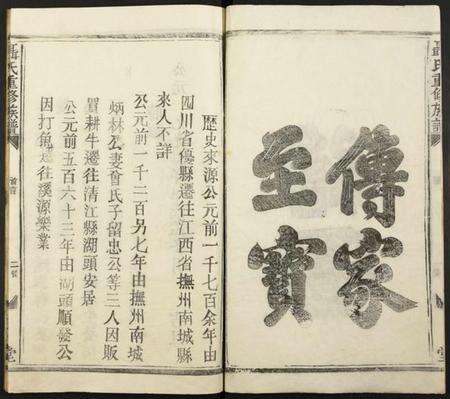 氏重修族譜
傳家
至寶
堂
歷史來源公元前一千七百余年由
四川省傷縣遷往江西省撫州南城縣
來人不詳
公元前一千二百另七年由撫州南城
炳林公妻曾氏子留忠公等三人因販
買耕牛遷往清江縣湖頭安居
公元前五百六十三年由湖頭順發公
因打魚遷往溪源樂業
聶氏重修族譜
二
堂